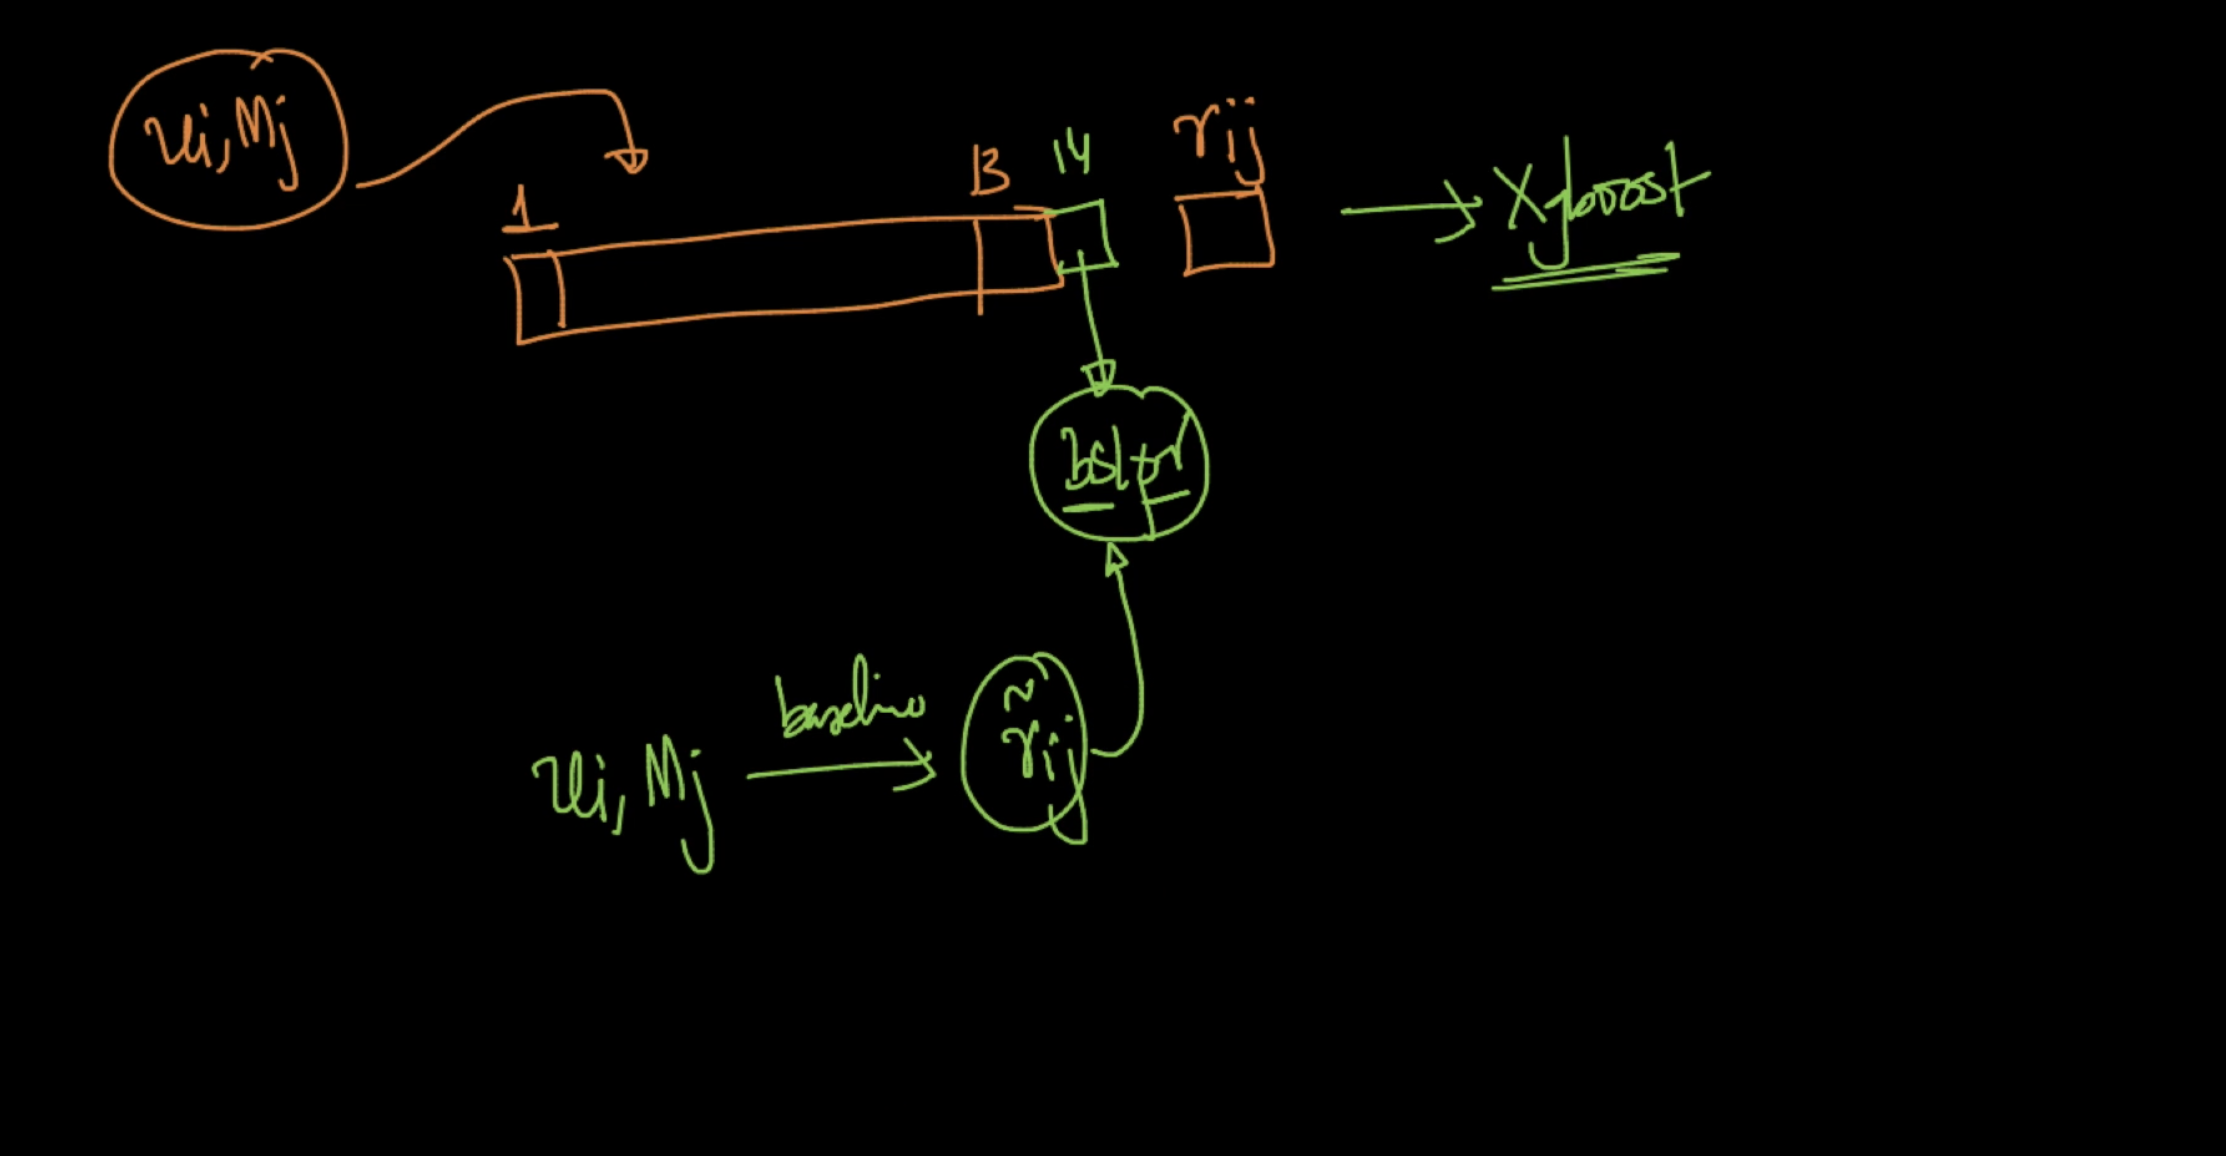 ui, Mj
1
13
14
rij
Xgboost
bslpr
ui, Mj
baseline
r̃ij